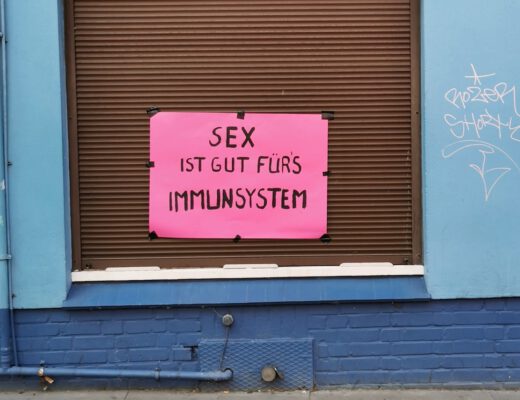 SEX
IST GUT FÜR'S
IMMUNSYSTEM